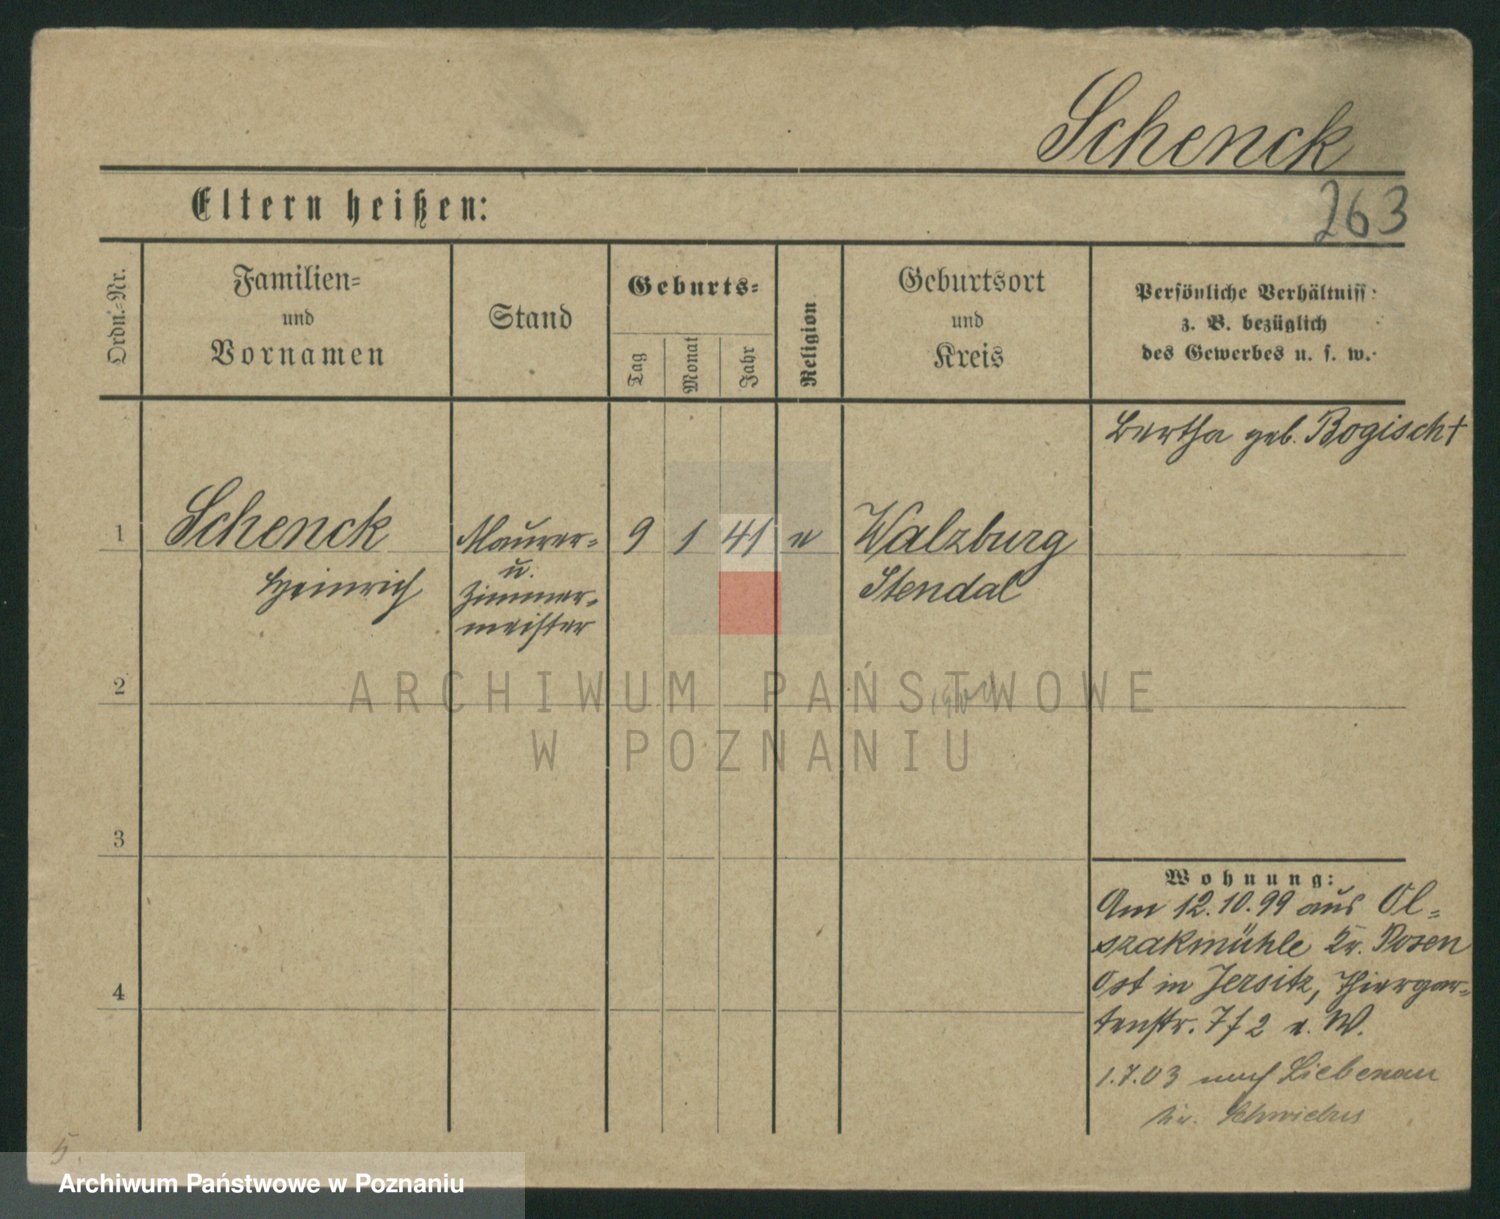 Schenck
Eltern heißen:
263
Ordn.-Nr.
Familien-
und
Vornamen
Stand
Geburts-
Tag
Monat
Jahr
Religion
Geburtsort
und
Kreis
Persönliche Verhältniss
z. B. bezüglich
des Gewerbes u. s. w.
Bertha geb. Bogisch †
1
Schenck
Heinrich
Maurer-
u.
Zimmer-
meister
9
1
41
e
Walzburg
Stendal
2
3
4
Wohnung:
Am 12.10.99 aus Ol-
szakmühle Kr. Posen
Ost in Jersitz, Thiergar-
tenstr. 7 f 2 e. W.
1.7.03 nach Liebenau
Kr. Schwiebus
5.
ARCHIWUM PAŃSTWOWE
W POZNANIU
Archiwum Państwowe w Poznaniu